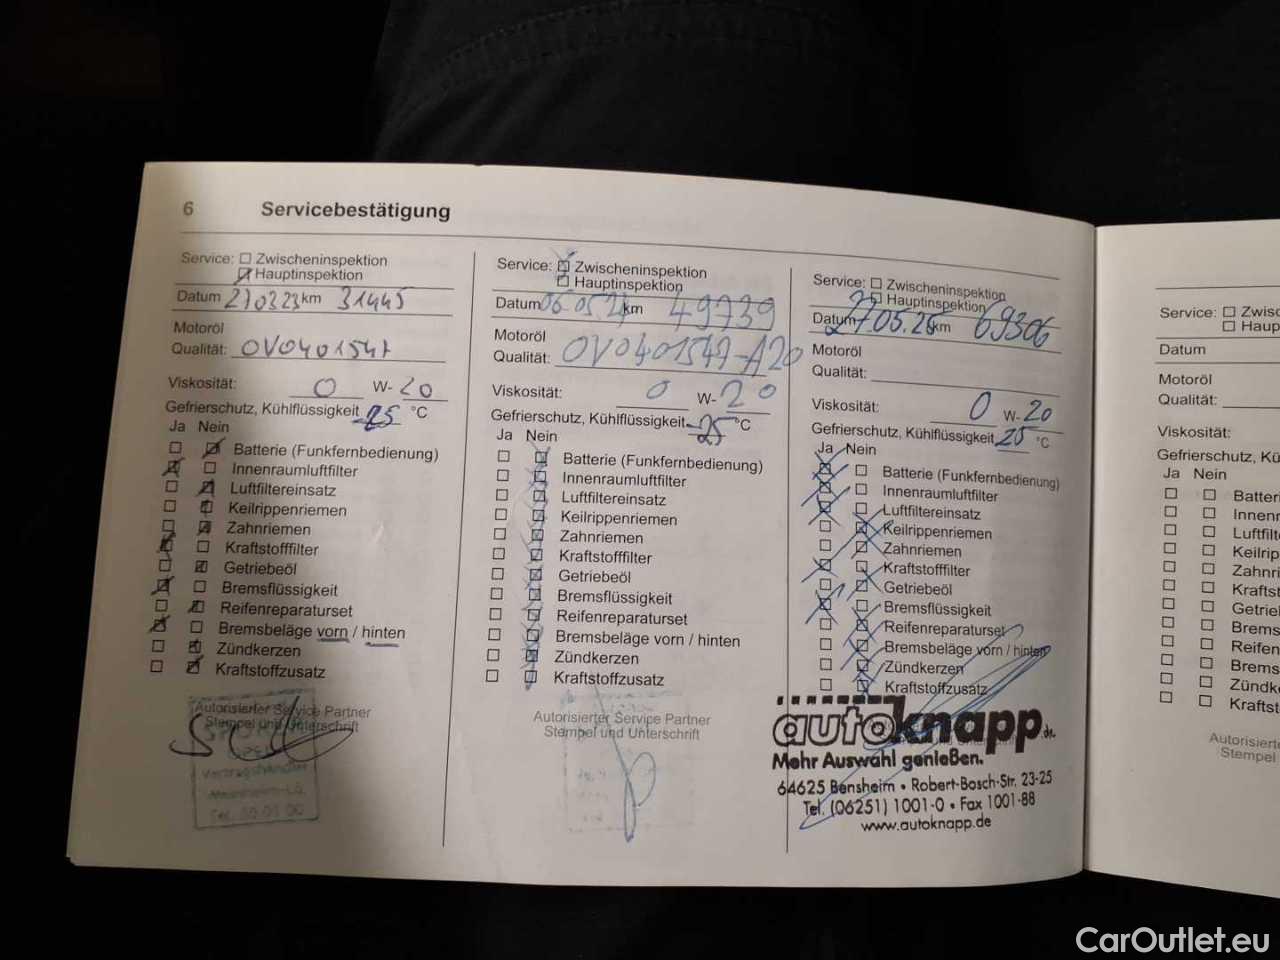 6 Servicebestätigung
Service: Zwischeninspektion
Hauptinspektion
Datum 270323 km 31445
Motoröl
Qualität: OV0401547
Viskosität: 0 W- 20
Gefrierschutz, Kühlflüssigkeit -25 °C
Ja Nein
Batterie (Funkfernbedienung)
Innenraumluftfilter
Luftfiltereinsatz
Keilrippenriemen
Zahnriemen
Kraftstofffilter
Getriebeöl
Bremsflüssigkeit
Reifenreparaturset
Bremsbeläge vorn / hinten
Zündkerzen
Kraftstoffzusatz
Autorisierter Service Partner
Stempel und Unterschrift
Vertragshändler
Service: Zwischeninspektion
Hauptinspektion
Datum 06.05.24 km 49739
Motoröl
Qualität: OV0401547-A20
Viskosität: 0 W- 20
Gefrierschutz, Kühlflüssigkeit -25 °C
Ja Nein
Batterie (Funkfernbedienung)
Innenraumluftfilter
Luftfiltereinsatz
Keilrippenriemen
Zahnriemen
Kraftstofffilter
Getriebeöl
Bremsflüssigkeit
Reifenreparaturset
Bremsbeläge vorn / hinten
Zündkerzen
Kraftstoffzusatz
Autorisierter Service Partner
Stempel und Unterschrift
Service: Zwischeninspektion
Hauptinspektion
Datum 27.05.25 km 69306
Motoröl
Qualität:
Viskosität: 0 W- 20
Gefrierschutz, Kühlflüssigkeit -25 °C
Ja Nein
Batterie (Funkfernbedienung)
Innenraumluftfilter
Luftfiltereinsatz
Keilrippenriemen
Zahnriemen
Kraftstofffilter
Getriebeöl
Bremsflüssigkeit
Reifenreparaturset
Bremsbeläge vorn / hinten
Zündkerzen
Kraftstoffzusatz
autoknapp.de
Mehr Auswahl genießen.
64625 Bensheim • Robert-Bosch-Str. 23-25
Tel. (06251) 1001-0 • Fax 1001-88
www.autoknapp.de
Service: Zwisc
Haup
Datum
Motoröl
Qualität:
Viskosität:
Gefrierschutz, Kü
Ja Nein
Batteri
Innenr
Luftfilt
Keilrip
Zahnri
Kraftst
Getrie
Brems
Reifen
Brems
Zündk
Kraftst
Autorisierte
Stempel
CarOutlet.eu